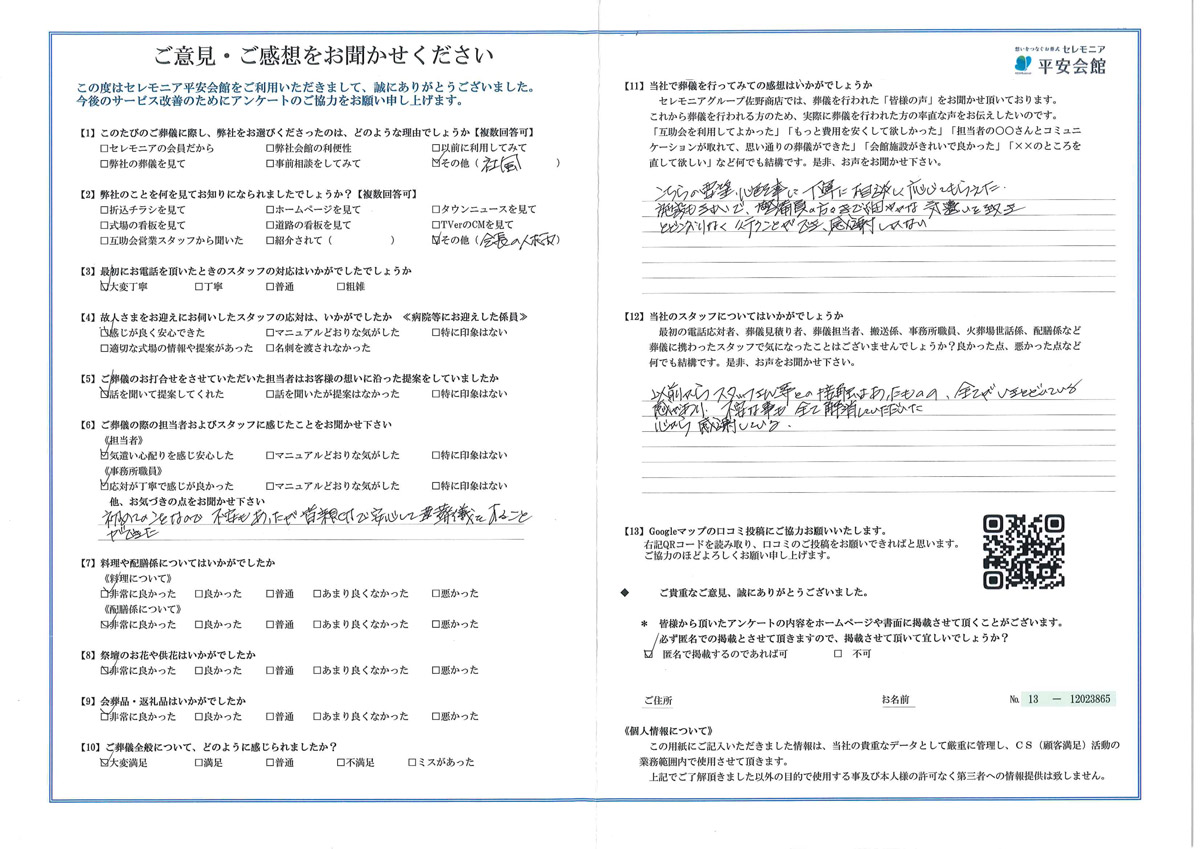 ご意見・ご感想をお聞かせください
この度はセレモニア平安会館をご利用いただきまして、誠にありがとうございました。
今後のサービス改善のためにアンケートのご協力をお願い申し上げます。
【1】このたびのご葬儀に際し、弊社をお選びくださったのは、どのような理由でしょうか【複数回答可】
□セレモニアの会員だから □弊社会館の利便性 □以前に利用してみて
□弊社の葬儀を見て □事前相談をしてみて ☑その他（社風）
【2】弊社のことを何を見てお知りになられましたでしょうか？【複数回答可】
□折込チラシを見て □ホームページを見て □タウンニュースを見て
□式場の看板を見て □道路の看板を見て □TVerのCMを見て
□互助会営業スタッフから聞いた □紹介されて（ ） ☑その他（会長の人柄）
【3】最初にお電話を頂いたときのスタッフの対応はいかがでしたでしょうか
☑大変丁寧 □丁寧 □普通 □粗雑
【4】故人さまをお迎えにお伺いしたスタッフの応対は、いかがでしたか ≪病院等にお迎えした係員≫
☑感じが良く安心できた □マニュアルどおりな気がした □特に印象はない
□適切な式場の情報や提案があった □名刺を渡されなかった
【5】ご葬儀のお打合せをさせていただいた担当者はお客様の想いに沿った提案をしていましたか
☑話を聞いて提案してくれた □話を聞いたが提案はなかった □特に印象はない
【6】ご葬儀の際の担当者およびスタッフに感じたことをお聞かせ下さい
《担当者》
☑気遣い心配りを感じ安心した □マニュアルどおりな気がした □特に印象はない
《事務所職員》
☑応対が丁寧で感じが良かった □マニュアルどおりな気がした □特に印象はない
他、お気づきの点をお聞かせ下さい
初めてのことなので 不安もあったが皆親切で安心して葬儀をすること
ができた
【7】料理や配膳係についてはいかがでしたか
《料理について》
☑非常に良かった □良かった □普通 □あまり良くなかった □悪かった
《配膳係について》
☑非常に良かった □良かった □普通 □あまり良くなかった □悪かった
【8】祭壇のお花や供花はいかがでしたか
☑非常に良かった □良かった □普通 □あまり良くなかった □悪かった
【9】会葬品・返礼品はいかがでしたか
☑非常に良かった □良かった □普通 □あまり良くなかった □悪かった
【10】ご葬儀全般について、どのように感じられましたか？
☑大変満足 □満足 □普通 □不満足 □ミスがあった
想いをつなぐお葬式 セレモニア
平安会館
【11】当社で葬儀を行ってみての感想はいかがでしょうか
セレモニアグループ佐野商店では、葬儀を行われた「皆様の声」をお聞かせ頂いております。
これから葬儀を行われる方のため、実際に葬儀を行われた方の率直な声をお伝えしたいのです。
「互助会を利用してよかった」「もっと費用を安くして欲しかった」「担当者の〇〇さんとコミュニ
ケーションが取れて、思い通りの葬儀ができた」「会館施設がきれいで良かった」「××のところを
直して欲しい」など何でも結構です。是非、お声をお聞かせ下さい。
こちらの要望、心配事に丁寧に相談し応じてもらえた.
施設もきれいで、警備員の方々まで細やかな気遣いを
とどこおりなく行うことができ、感謝しかない
【12】当社のスタッフについてはいかがでしょうか
最初の電話応対者、葬儀見積り者、葬儀担当者、搬送係、事務所職員、火葬場世話係、配膳係など
葬儀に携わったスタッフで気になったことはございませんでしょうか？良かった点、悪かった点など
何でも結構です。是非、お声をお聞かせ下さい。
以前からスタッフさん等との接触はあったものの、全てがいきとどいている
感があり、不安な事も全て解消していただいた
心から感謝している.
【13】Googleマップの口コミ投稿にご協力お願いいたします。
右記QRコードを読み取り、口コミのご投稿をお願いできればと思います。
ご協力のほどよろしくお願い申し上げます。
◆ ご貴重なご意見、誠にありがとうございました。
＊ 皆様から頂いたアンケートの内容をホームページや書面に掲載させて頂くことがございます。
必ず匿名での掲載とさせて頂きますので、掲載させて頂いて宜しいでしょうか？
☑ 匿名で掲載するのであれば可 □ 不可
ご住所 お名前 № 13 － 12023865
《個人情報について》
この用紙にご記入いただきました情報は、当社の貴重なデータとして厳重に管理し、ＣＳ（顧客満足）活動の
業務範囲内で使用させて頂きます。
上記でご了解頂きました以外の目的で使用する事及び本人様の許可なく第三者への情報提供は致しません。